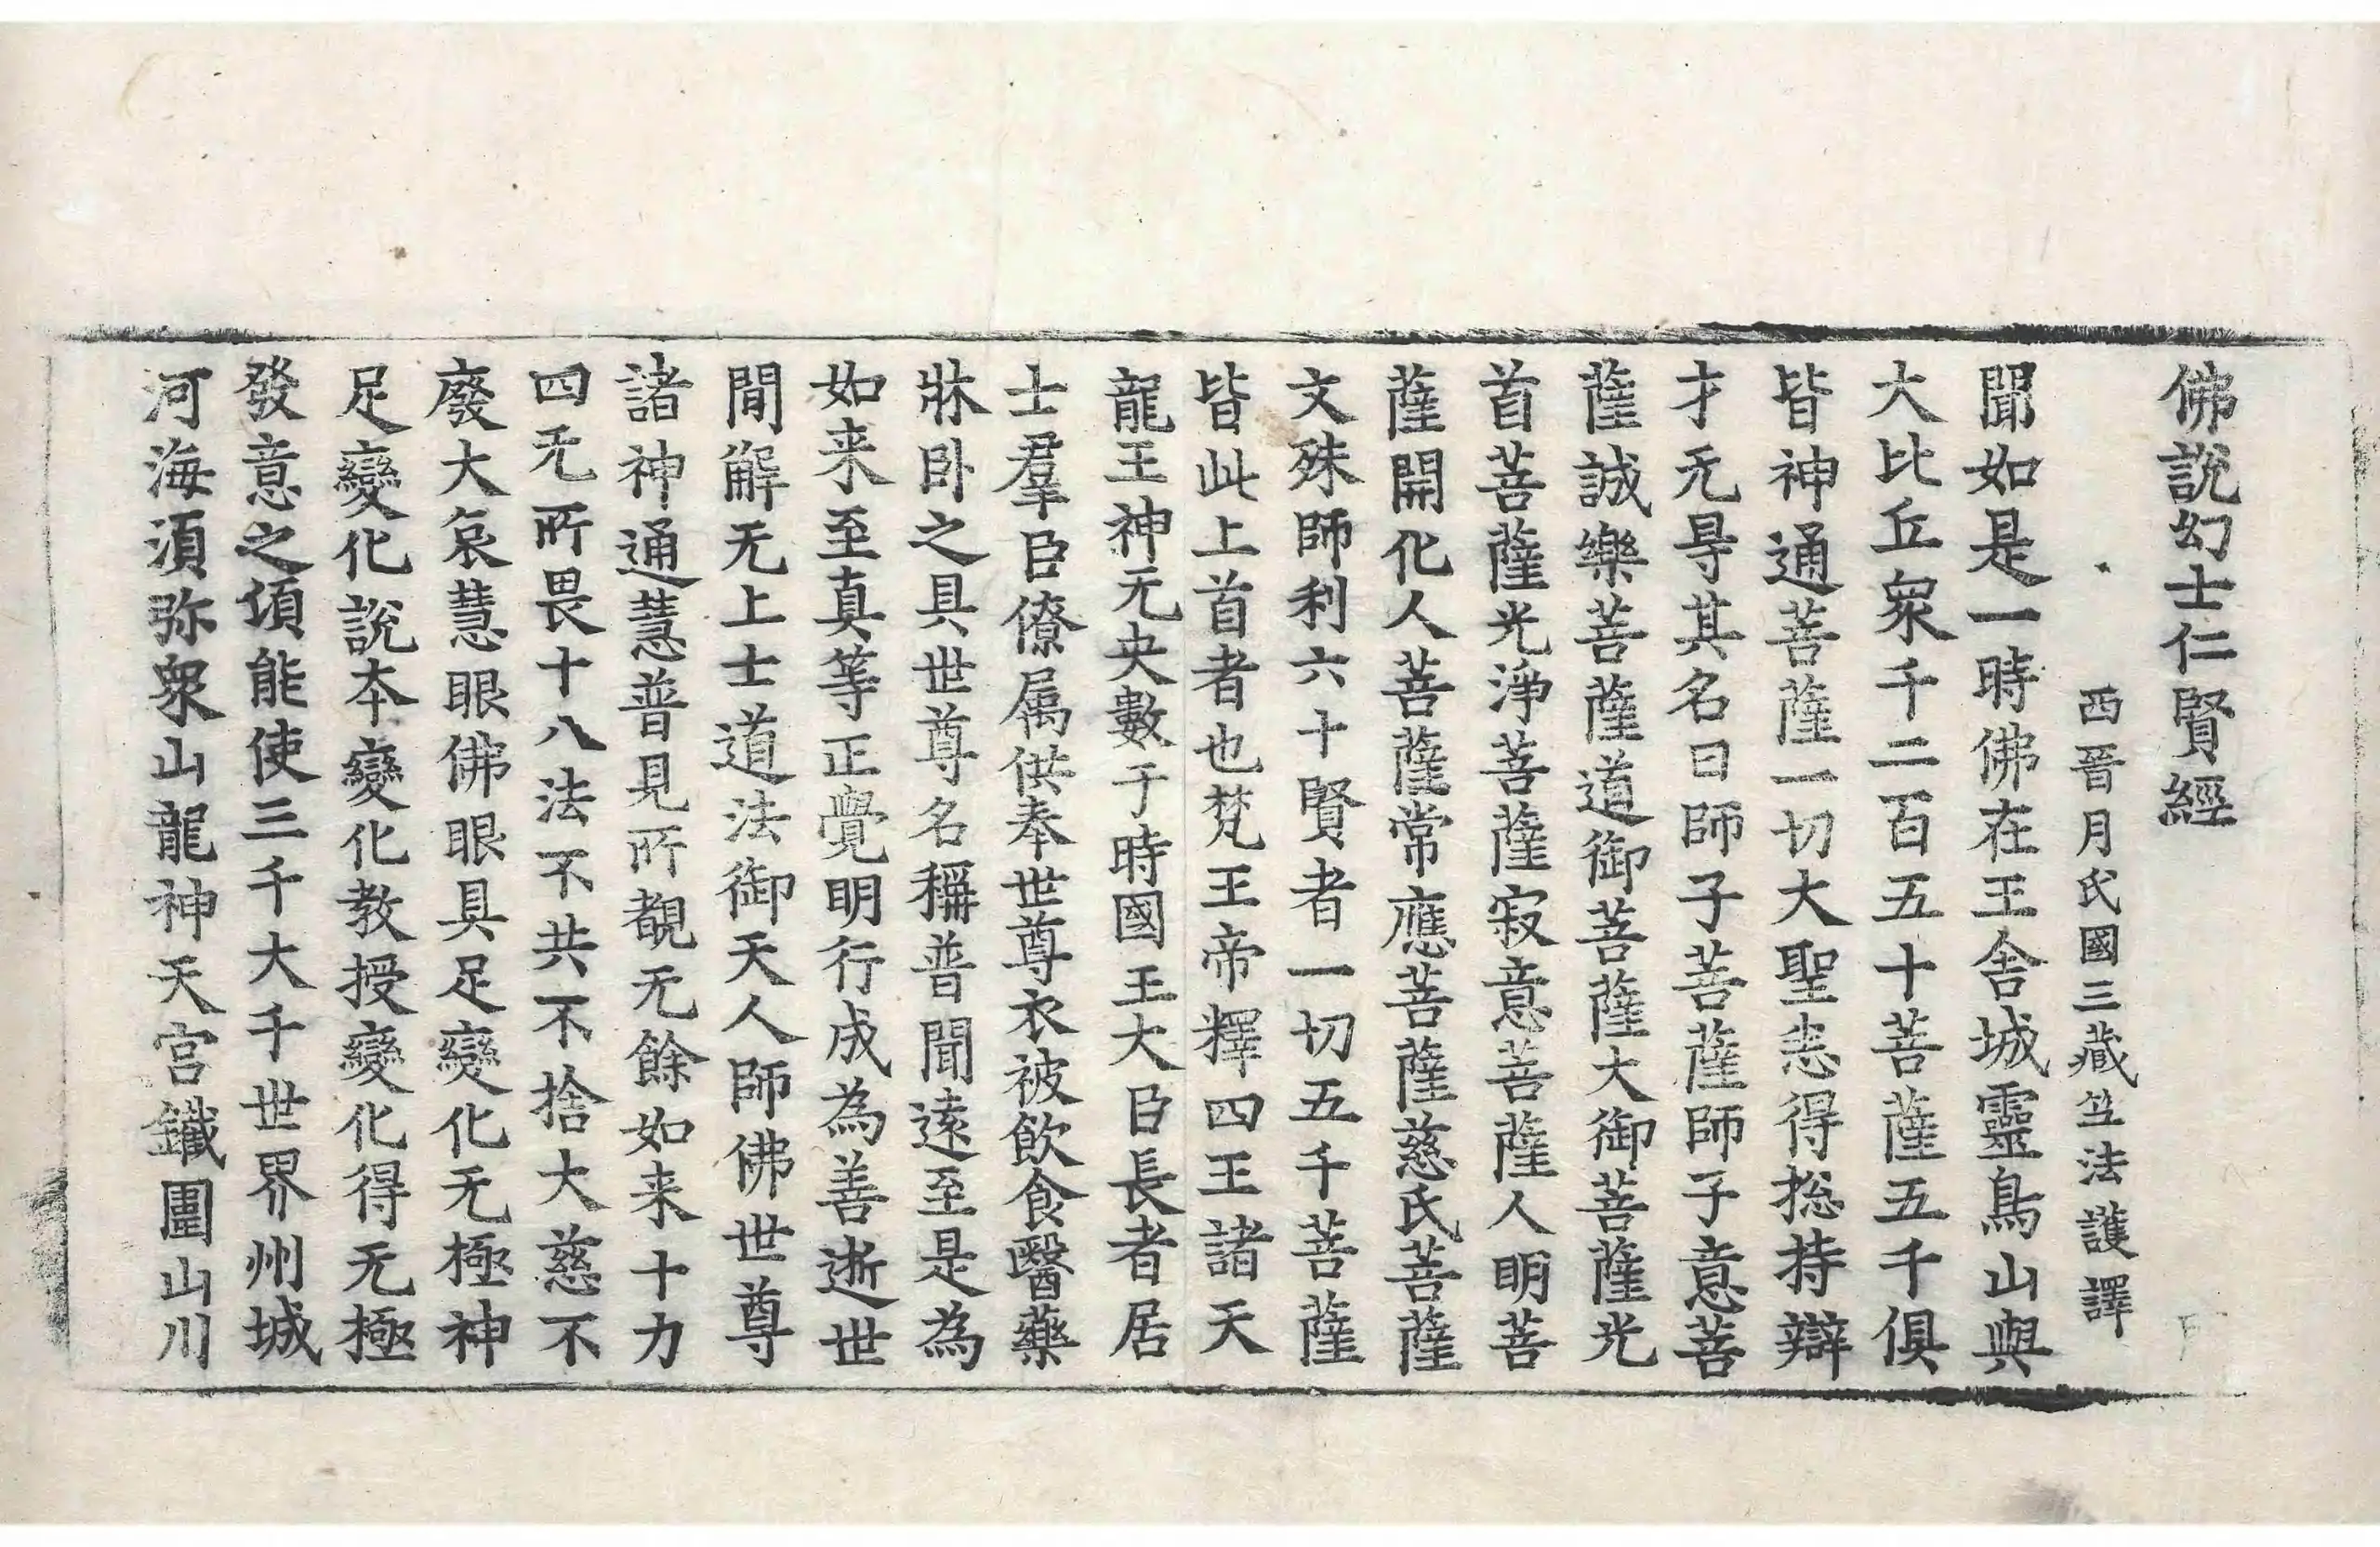 佛說幻士仁賢經
西晉月氏國三藏竺法護譯
聞如是一時佛在王舍城靈鳥山與
大比丘衆千二百五十菩薩五千俱
皆神通菩薩一切大聖悉得揔持辯
才无㝵其名曰師子菩薩師子意菩
薩誠樂菩薩道御菩薩大御菩薩光
首菩薩光淨菩薩寂意菩薩人明菩
薩開化人菩薩常應菩薩慈氏菩薩
文殊師利六十賢者一切五千菩薩
皆此上首者也梵王帝釋四王諸天
龍王神无央數于時國王大臣長者居
士羣臣僚属供奉世尊衣被飲食醫藥
牀卧之具世尊名稱普聞遠至是為
如来至真等正覺明行成為善逝世
間解无上士道法御天人師佛世尊
諸神通慧普見所覩无餘如来十力
四无所畏十八法不共不捨大慈不
廢大哀慧眼佛眼具足變化无極神
足變化說本變化教授變化得无極
發意之頃能使三千大千世界州城
河海須弥衆山龍神天宮鐵圍山川